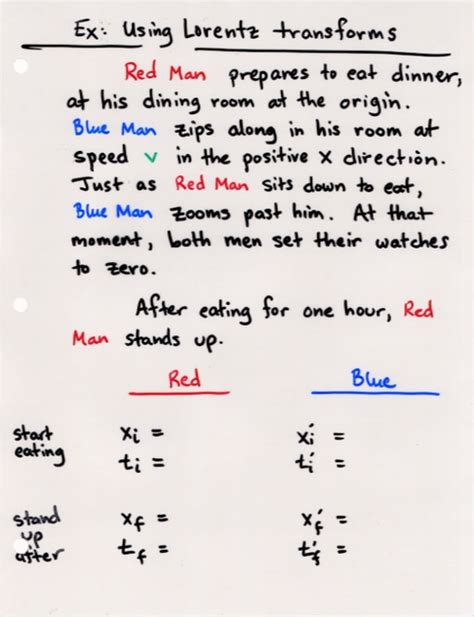 Ex: Using Lorentz transforms
Red Man prepares to eat dinner,
at his dining room at the origin.
Blue Man zips along in his room at
speed v in the positive x direction.
Just as Red Man sits down to eat,
Blue Man zooms past him. At that
moment, both men set their watches
to zero.
After eating for one hour, Red
Man stands up.
Red Blue
start eating
xi = xi' =
ti = ti' =
stand up after
xf = xf' =
tf = tf' =